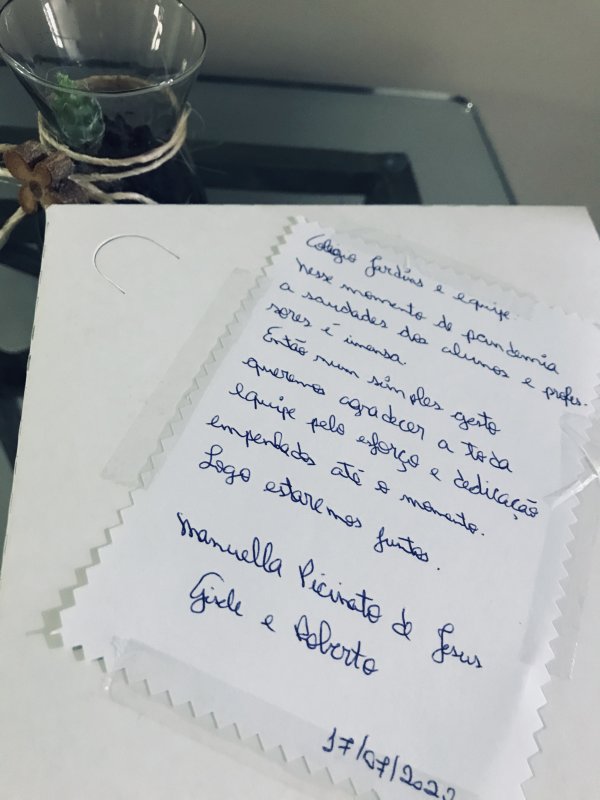 Colégio Jardins e equipe.
Nesse momento de pandemia
a saudades dos alunos e profes-
sores é imensa.
Então num simples gesto
queremos agradecer a toda
equipe pelo esforço e dedicação
empenhados até o momento.
Logo estaremos juntos.
Manuella Picinato de Jesus
Gisele e Roberto
17/07/202